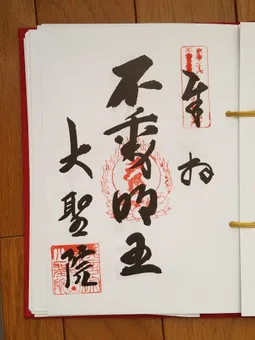 奉拝
不動明王
大聖院